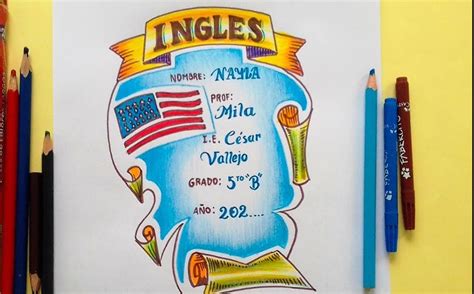 INGLES
NOMBRE: NAYLA
PROF:
Mila
I.E. César
Vallejo
GRADO: 5to "B"
AÑO: 202....
FABERLITO
FABERLITO